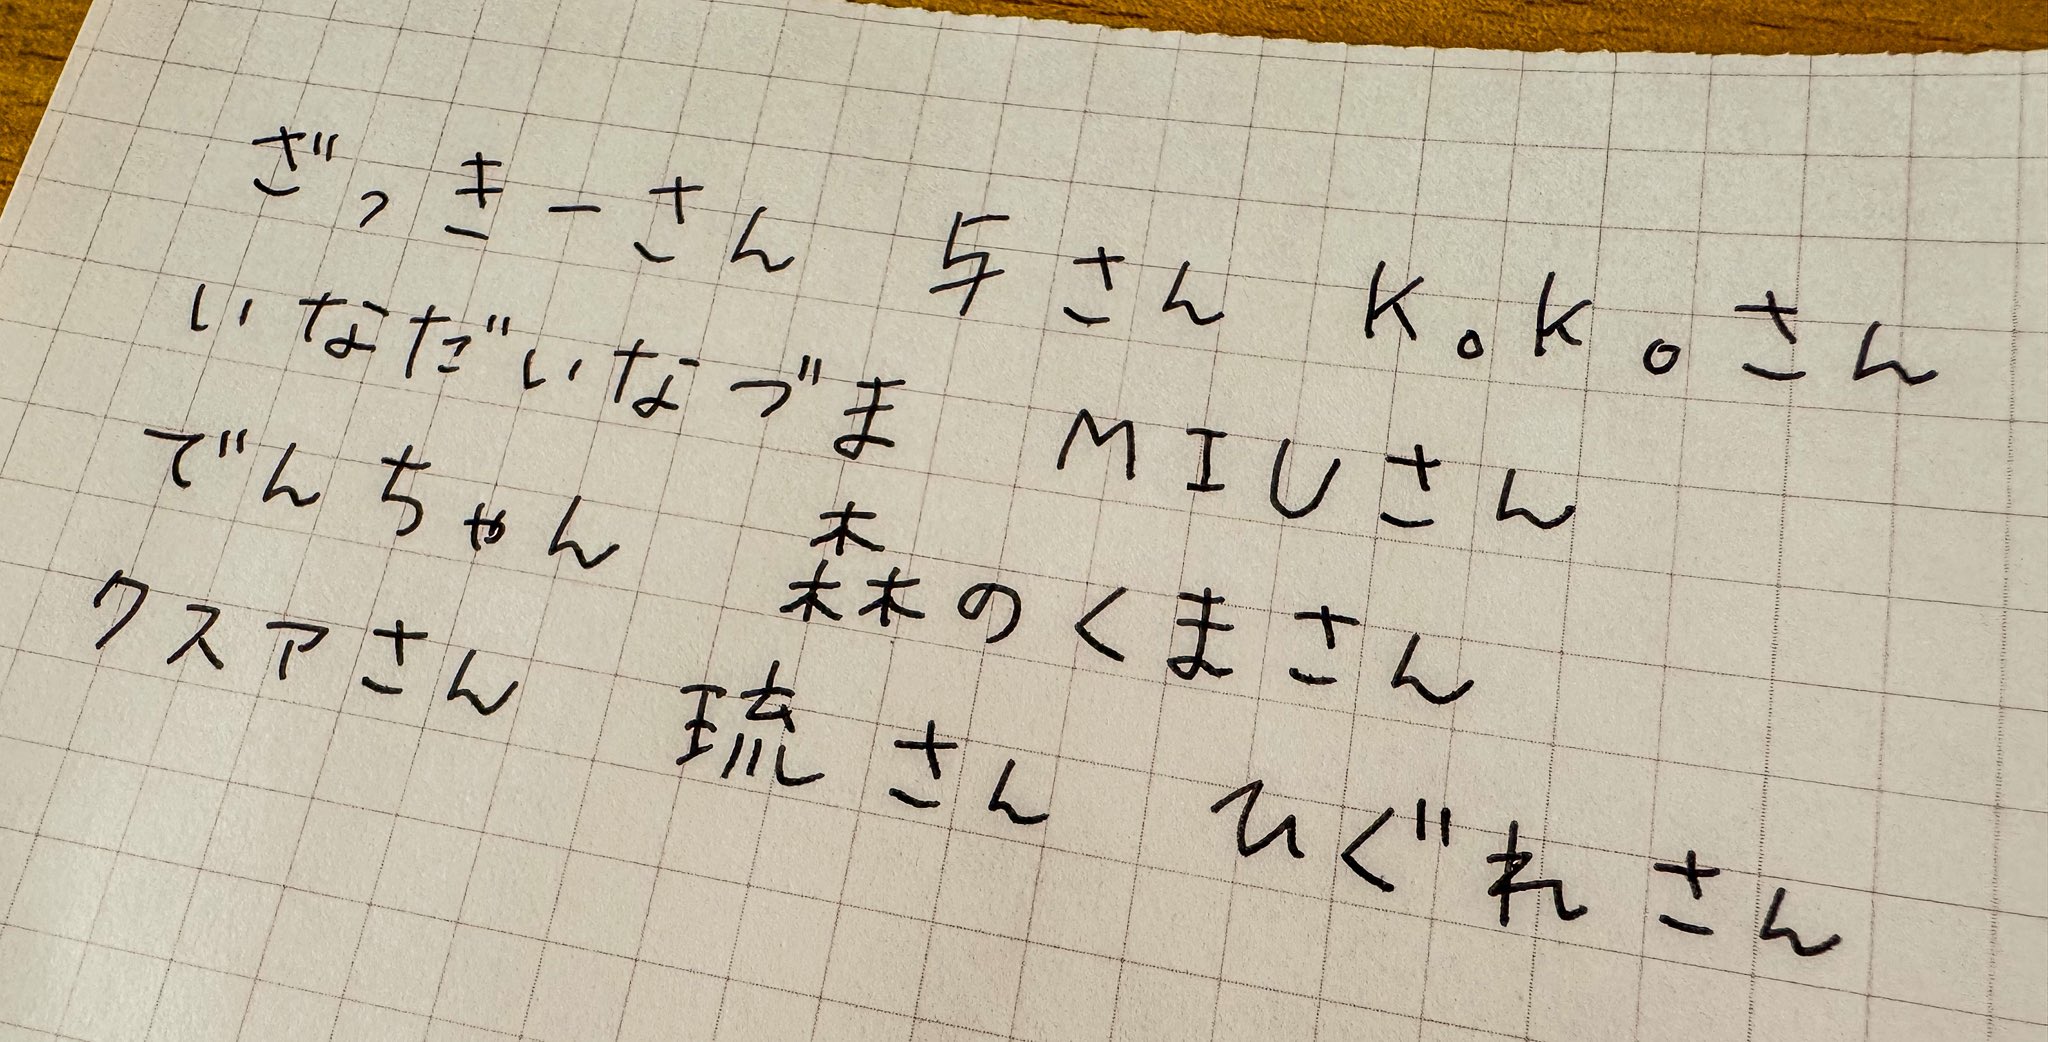 ざっきーさん 与さん K。K。さん
いなだいなづま MIUさん
でんちゃん 森のくまさん
クスアさん 琉さん ひぐれさん